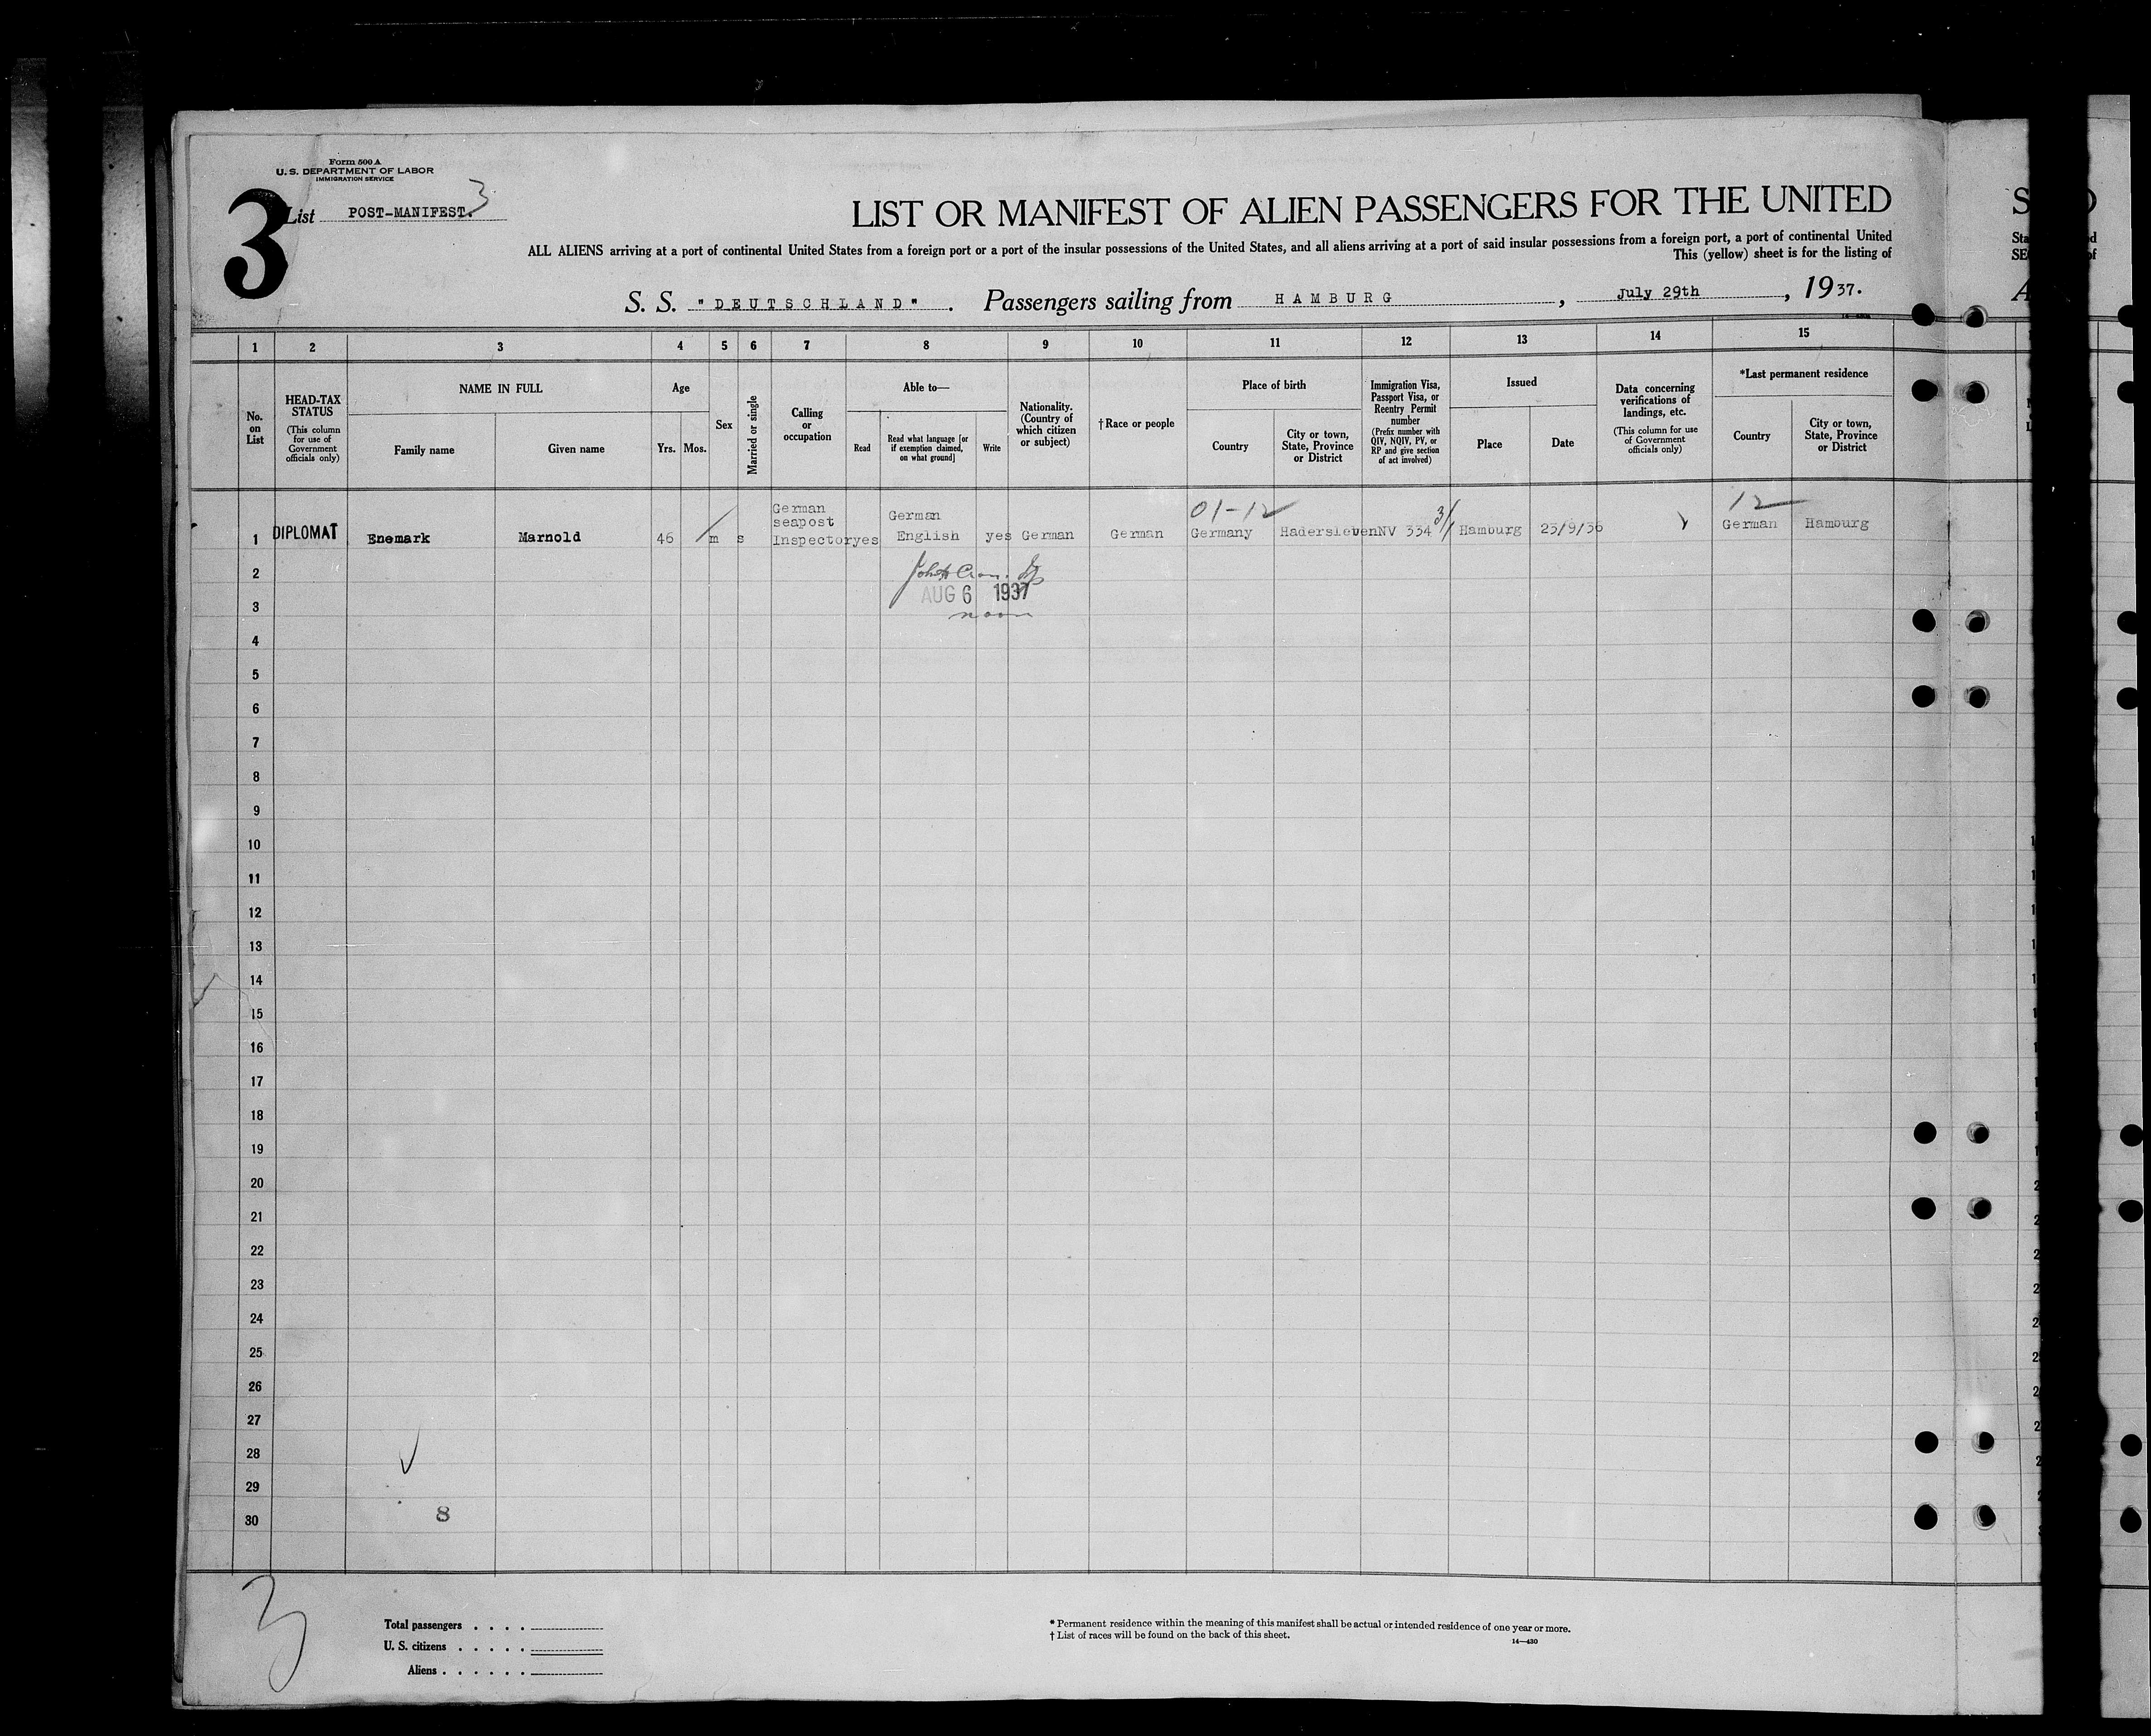 Form 500 A
U. S. DEPARTMENT OF LABOR
IMMIGRATION SERVICE
3 List POST-MANIFEST. 3
LIST OR MANIFEST OF ALIEN PASSENGERS FOR THE UNITED
ALL ALIENS arriving at a port of continental United States from a foreign port or a port of the insular possessions of the United States, and all aliens arriving at a port of said insular possessions from a foreign port, a port of continental United
This (yellow) sheet is for the listing of
S. S. "DEUTSCHLAND" . Passengers sailing from HAMBURG , July 29th , 1937.
1 2 3 4 5 6 7 8 9 10 11 12 13 14 15
No. on List
HEAD-TAX STATUS (This column for use of Government officials only)
NAME IN FULL
Family name Given name
Age
Yrs. Mos.
Sex
Married or single
Calling or occupation
Able to—
Read
Read what language [or if exemption claimed, on what ground]
Write
Nationality. (Country of which citizen or subject)
† Race or people
Place of birth
Country
City or town, State, Province or District
Immigration Visa, Passport Visa, or Reentry Permit number (Prefix number with QIV, NQIV, PV, or RP and give section of act involved)
Issued
Place Date
Data concerning verifications of landings, etc. (This column for use of Government officials only)
*Last permanent residence
Country
City or town, State, Province or District
01-12 3/1 12
1 DIPLOMAT Enemark Marnold 46 m s German seapost Inspector yes German English yes German German Germany Hadersleben NV 334 Hamburg 23/9/36 German Hamburg
2
AUG 6 1937
3
noon
4
5
6
7
8
9
10
11
12
13
14
15
16
17
18
19
20
21
22
23
24
25
26
27
28
29
30
8
3
Total passengers . . . .
U. S. citizens . . . . .
Aliens . . . . . .
* Permanent residence within the meaning of this manifest shall be actual or intended residence of one year or more.
† List of races will be found on the back of this sheet.
14—430